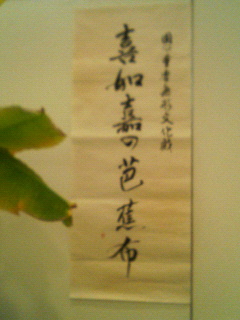 国の重要無形文化財
喜如嘉の芭蕉布